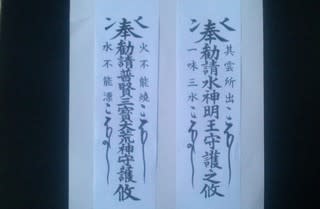 其雲所出
奉勧請水神明王守護之攸
一味三水
火不能焼
奉勧請普賢三寳大荒神守護攸
水不能漂